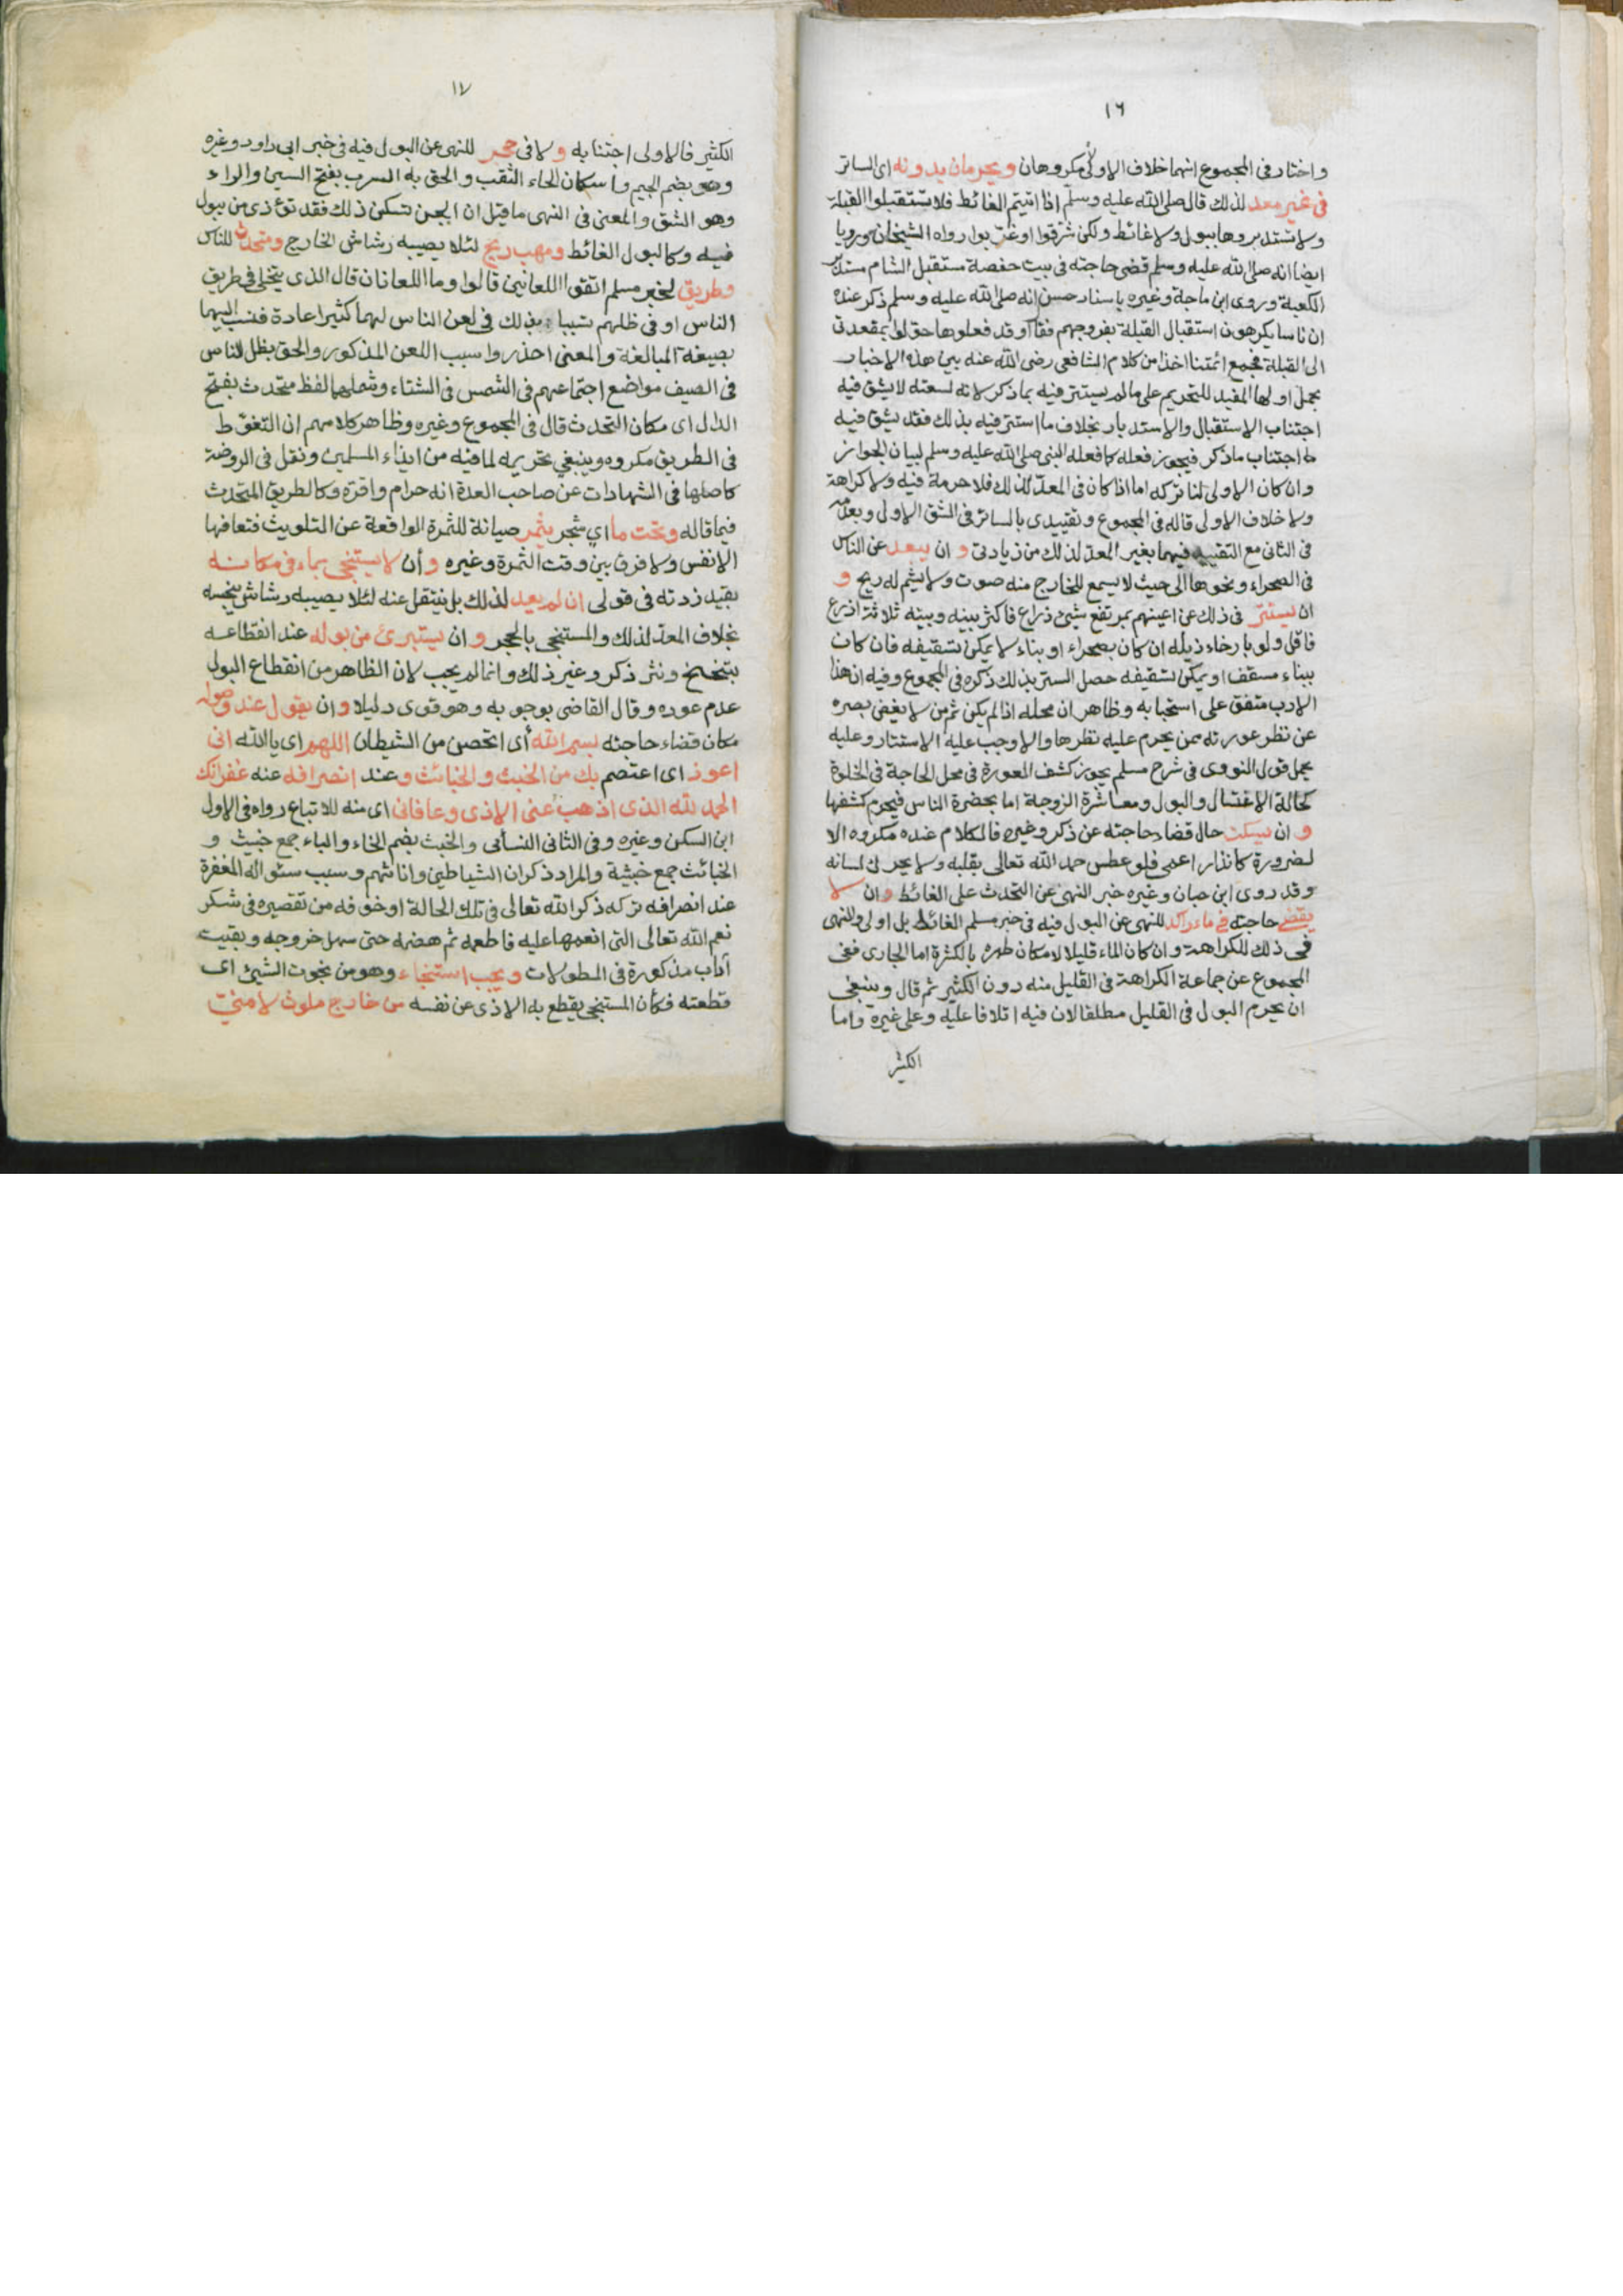 ١٦
واختار فى المجموع انهما خلاف الاولى لا مكروهان ويحرمان بدونه اى الساتر
فى غير معد لذلك قال صلى الله عليه وسلم اذا اتيتم الغائط فلا تستقبلوا القبلة
ولا تستدبروها ببول ولا غائط ولكن شرقوا او غربوا رواه الشيخان ورويا
ايضا انه صلى الله عليه وسلم قضى حاجته فى بيت حفصة مستقبل الشام مستدبر
الكعبة وروى ابن ماجة وغيره باسناد حسن انه صلى الله عليه وسلم ذكر عنده
ان ناسا يكرهون استقبال القبلة بفروجهم فقال او قد فعلوها حولوا بمقعدتى
الى القبلة فجمع ائمتنا اخذا من كلام الشافعى رضى الله عنه بين هذه الاخبار
بحمل اولها المفيد للتحريم على ما لم يستتر فيه بما ذكر لانه لسعته لا يشق فيه
اجتناب الاستقبال والاستدبار بخلاف ما استتر فيه بذلك فقد يشق فيه
اجتناب ما ذكر فيجوز فعله كما فعله النبى صلى الله عليه وسلم لبيان الجواز
وان كان الاولى لنا تركه اما اذا كان فى المعد لذلك فلا حرمة فيه ولا كراهة
ولا خلاف الاولى قاله فى المجموع وتقييدى بالساتر فى الشق الاول وبعدمه
فى الثانى مع التقييد فيهما بغير المعد لذلك من زيادتى و ان يبعد عن الناس
فى الصحراء ونحوها الى حيث لا يسمع للخارج منه صوت ولا يشم له ريح و
ان يستتر فى ذلك عن اعينهم بمرتفع شىء ذراع فاكثر بينه وبينه ثلاثة اذرع
فاقل ولو بارخاء ذيله ان كان بصحراء او بناء لا يمكن تسقيفه فان كان
ببناء مسقف او يمكن تسقيفه حصل الستر بذلك ذكره فى المجموع وفيه ان هذا
الادب متفق على استحبابه وظاهر ان محله اذا لم يكن ثم من لا يغض بصره
عن نظر عورته ممن يحرم عليه نظرها والا وجب عليه الاستتار وعليه
يحمل قول النووى فى شرح مسلم يجوز كشف العورة فى محل الحاجة فى الخلوة
كحالة الاغتسال والبول ومعاشرة الزوجة اما بحضرة الناس فيحرم كشفها
و ان يسكت حال قضاء حاجته عن ذكر وغيره فالكلام عنده مكروه الا
لضرورة كانذار اعمى فلو عطس حمد الله تعالى بقلبه ولا يحرك لسانه
وقد روى ابن حبان وغيره خبر النهى عن التحدث على الغائط وان لا
يقضى حاجته فى ماء راكد للنهى عن البول فيه فى خبر مسلم الغائط بل اولى والنهى
فى ذلك للكراهة وان كان الماء قليلا لامكان طهره بالكثرة اما الجارى ففى
المجموع عن جماعة الكراهة فى القليل منه دون الكثير ثم قال وينبغى
ان يحرم البول فى القليل مطلقا لان فيه اتلافا عليه وعلى غيره واما
الكثير
١٧
الكثير فالاولى اجتنابه ولا فى جحر للنهى عن البول فيه فى خبر ابى داود وغيره
وهو بضم الجيم واسكان الحاء الثقب والحق به السرب بفتح السين والراء
وهو الشق والمعنى فى النهى ما قيل ان الجن تسكن ذلك فقد تؤذى من يبول
فيه وكالبول الغائط ومهب ريح لئلا يصيبه رشاش الخارج ومتحدث للناس
وطريق لخبر مسلم اتقوا اللعانين قالوا وما اللعانان قال الذى يتخلى فى طريق
الناس او فى ظلهم تسببا بذلك فى لعن الناس لهما كثيرا عادة فنسب اليهما
بصيغة المبالغة والمعنى احذروا سبب اللعن المذكور والحق بظل الناس
فى الصيف مواضع اجتماعهم فى الشمس فى الشتاء وشملهما لفظ متحدث بفتح
الدال اى مكان التحدث قال فى المجموع وغيره وظاهر كلامهم ان التغوط
فى الطريق مكروه وينبغي تحريمه لما فيه من ايذاء المسلمين ونقل فى الروضة
كاصلها فى الشهادات عن صاحب العدة انه حرام واقره وكالطريق المتحدث
فيما قاله وتحت ما اي شجر يثمر صيانة للثمرة الواقعة عن التلويث فتعافها
الانفس ولا فرق بين وقت الثمرة وغيره وأن لا يستنجى بماء فى مكانه
بقيد زدته فى قولى ان لم يعد لذلك بل ينتقل عنه لئلا يصيبه رشاش ينجسه
بخلاف المعد لذلك والمستنجى بالحجر و ان يستبرئ من بوله عند انقطاعه
بتنحنح ونثر ذكر وغير ذلك وانما لم يجب لان الظاهر من انقطاع البول
عدم عوده وقال القاضى بوجوبه وهو قوى دليلا وان يقول عند وصوله
مكان قضاء حاجته بسم الله أى اتحصن من الشيطان اللهم اى يا الله انى
اعوذ اى اعتصم بك من الخبث والخبائث وعند انصرافه عنه غفرانك
الحمد لله الذى اذهب عنى الاذى وعافانى اى منه للاتباع رواه فى الاول
ابن السكن وغيره وفى الثانى النسائى والخبث بضم الخاء والباء جمع خبيث و
الخبائث جمع خبيثة والمراد ذكران الشياطين واناثهم وسبب سؤاله المغفرة
عند انصرافه تركه ذكر الله تعالى فى تلك الحالة او خوفه من تقصيره فى شكر
نعم الله تعالى التى انعمها عليه فاطعمه ثم هضمه حتى سهل خروجه وبقيت
آداب مذكورة فى المطولات ويجب استنجاء وهو من نجوت الشىء اى
قطعته فكأن المستنجى يقطع به الاذى عن نفسه من خارج ملوث لا منى